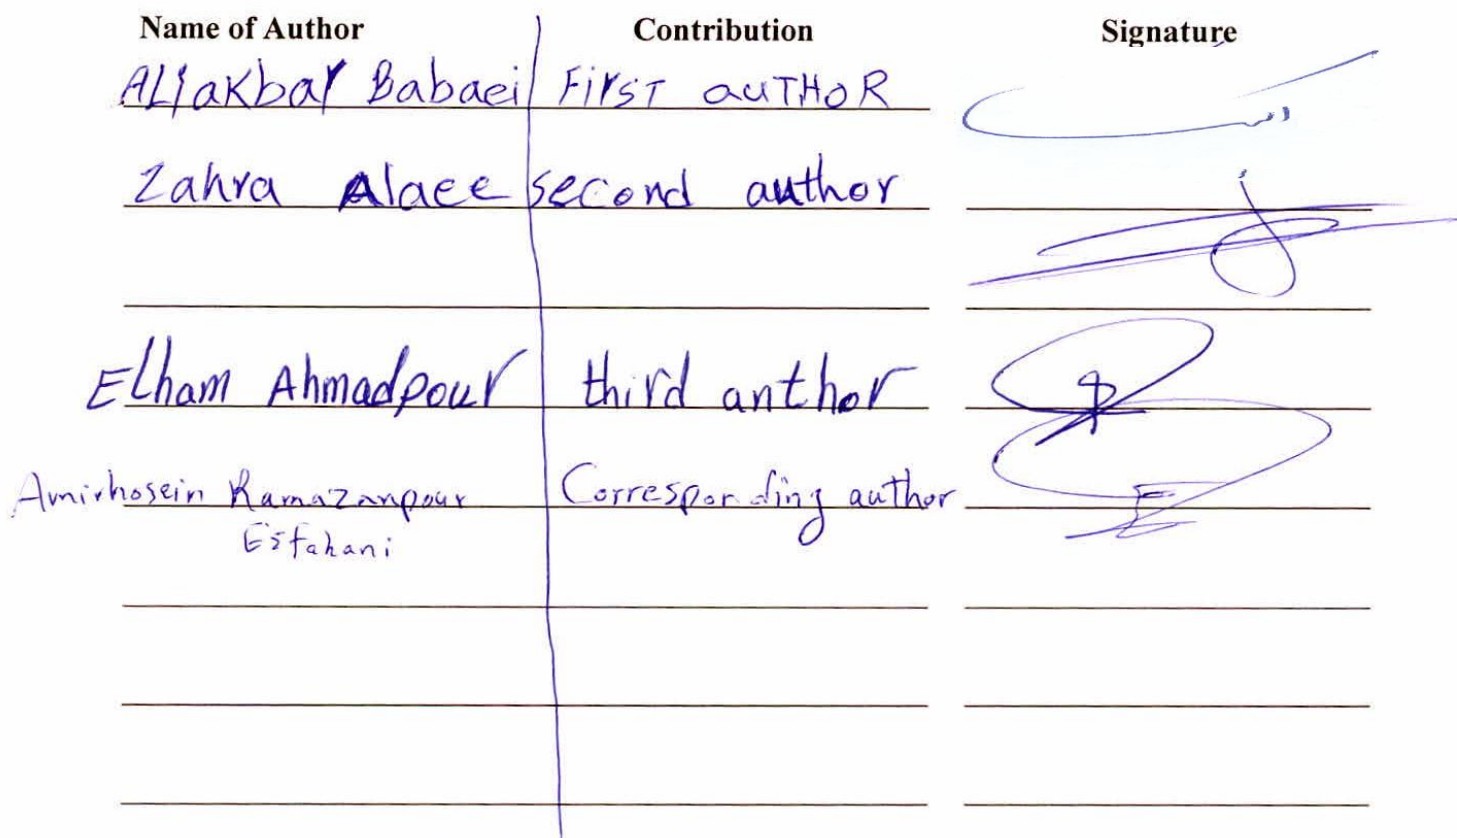 Name of Author Contribution Signature
ALiakbar Babaei First auTHoR
Zahra Alaee second author
Elham Ahmadpour third anthor
Amirhosein Ramazanpour Corresponding author
Esfahani